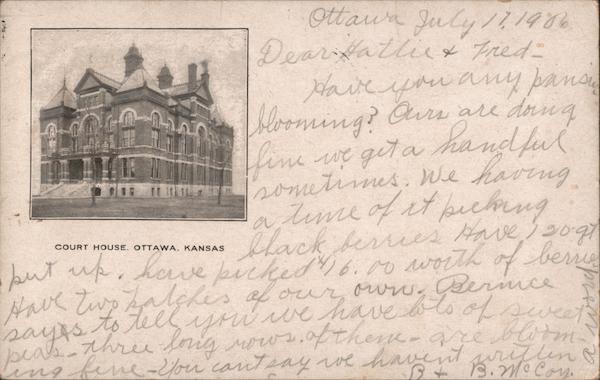 Ottawa July 17, 1906
Dear Hattie & Fred-
Have you any pansies
blooming? Ours are doing
fine we get a handful
sometimes. We having
a time of it picking
black berries Have 120 qt
put up. have picked $16.00 worth of berries
Have two patches of our own. Bernice
says to tell you we have lots of sweet
peas - three long rows of them - are bloom-
ing fine - You cant say we havent written
a word
B & B. McCoy.
COURT HOUSE. OTTAWA. KANSAS